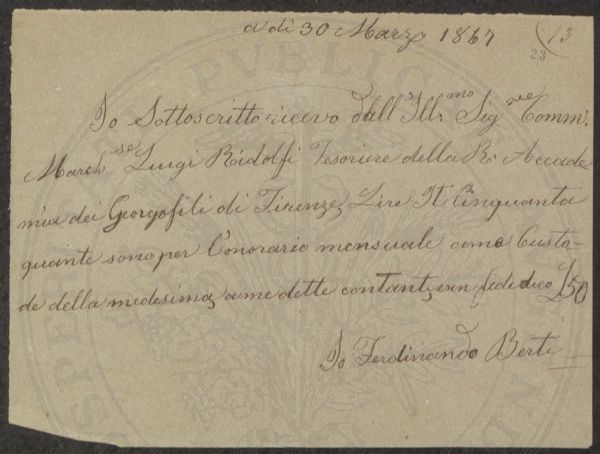 a dì 30 Marzo 1867
13
23
Io Sottoscritto ricevo dall'Ill.mo Sig.re Comm.
March.se Luigi Ridolfi Tesoriere della R. Accade
mia dei Georgofili di Firenze, Lire It. Cinquanta
quante sono per l'onorario mensuale come Custo-
de della medesima, a me dette contanti, e in fede dico £50
Io Ferdinando Berti
PVBLICAE